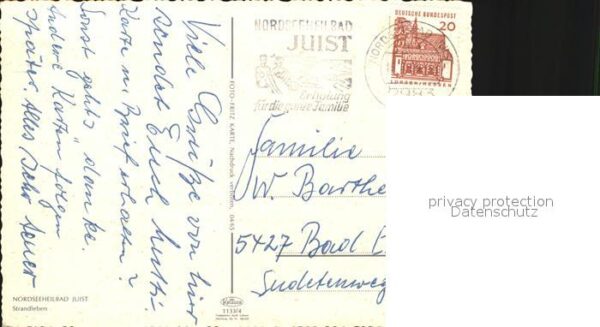 Viele Grüße von hier
sendet Euch
Karte u. Brief erhalten?
Sonst geht's danke.
Andere Karten folgen
später. Alles sehr teuer
NORDSEEHEILBAD JUIST
Strandleben
FOTO-FRITZ KARTE, Nachdruck verboten, 0465
1133/4
NORDSEEHEILBAD
JUIST
Erholung
für die ganze Familie
DEUTSCHE BUNDESPOST
20
Familie
W. Barthe
5427 Bad E
Sudetenweg
privacy protection
Datenschutz